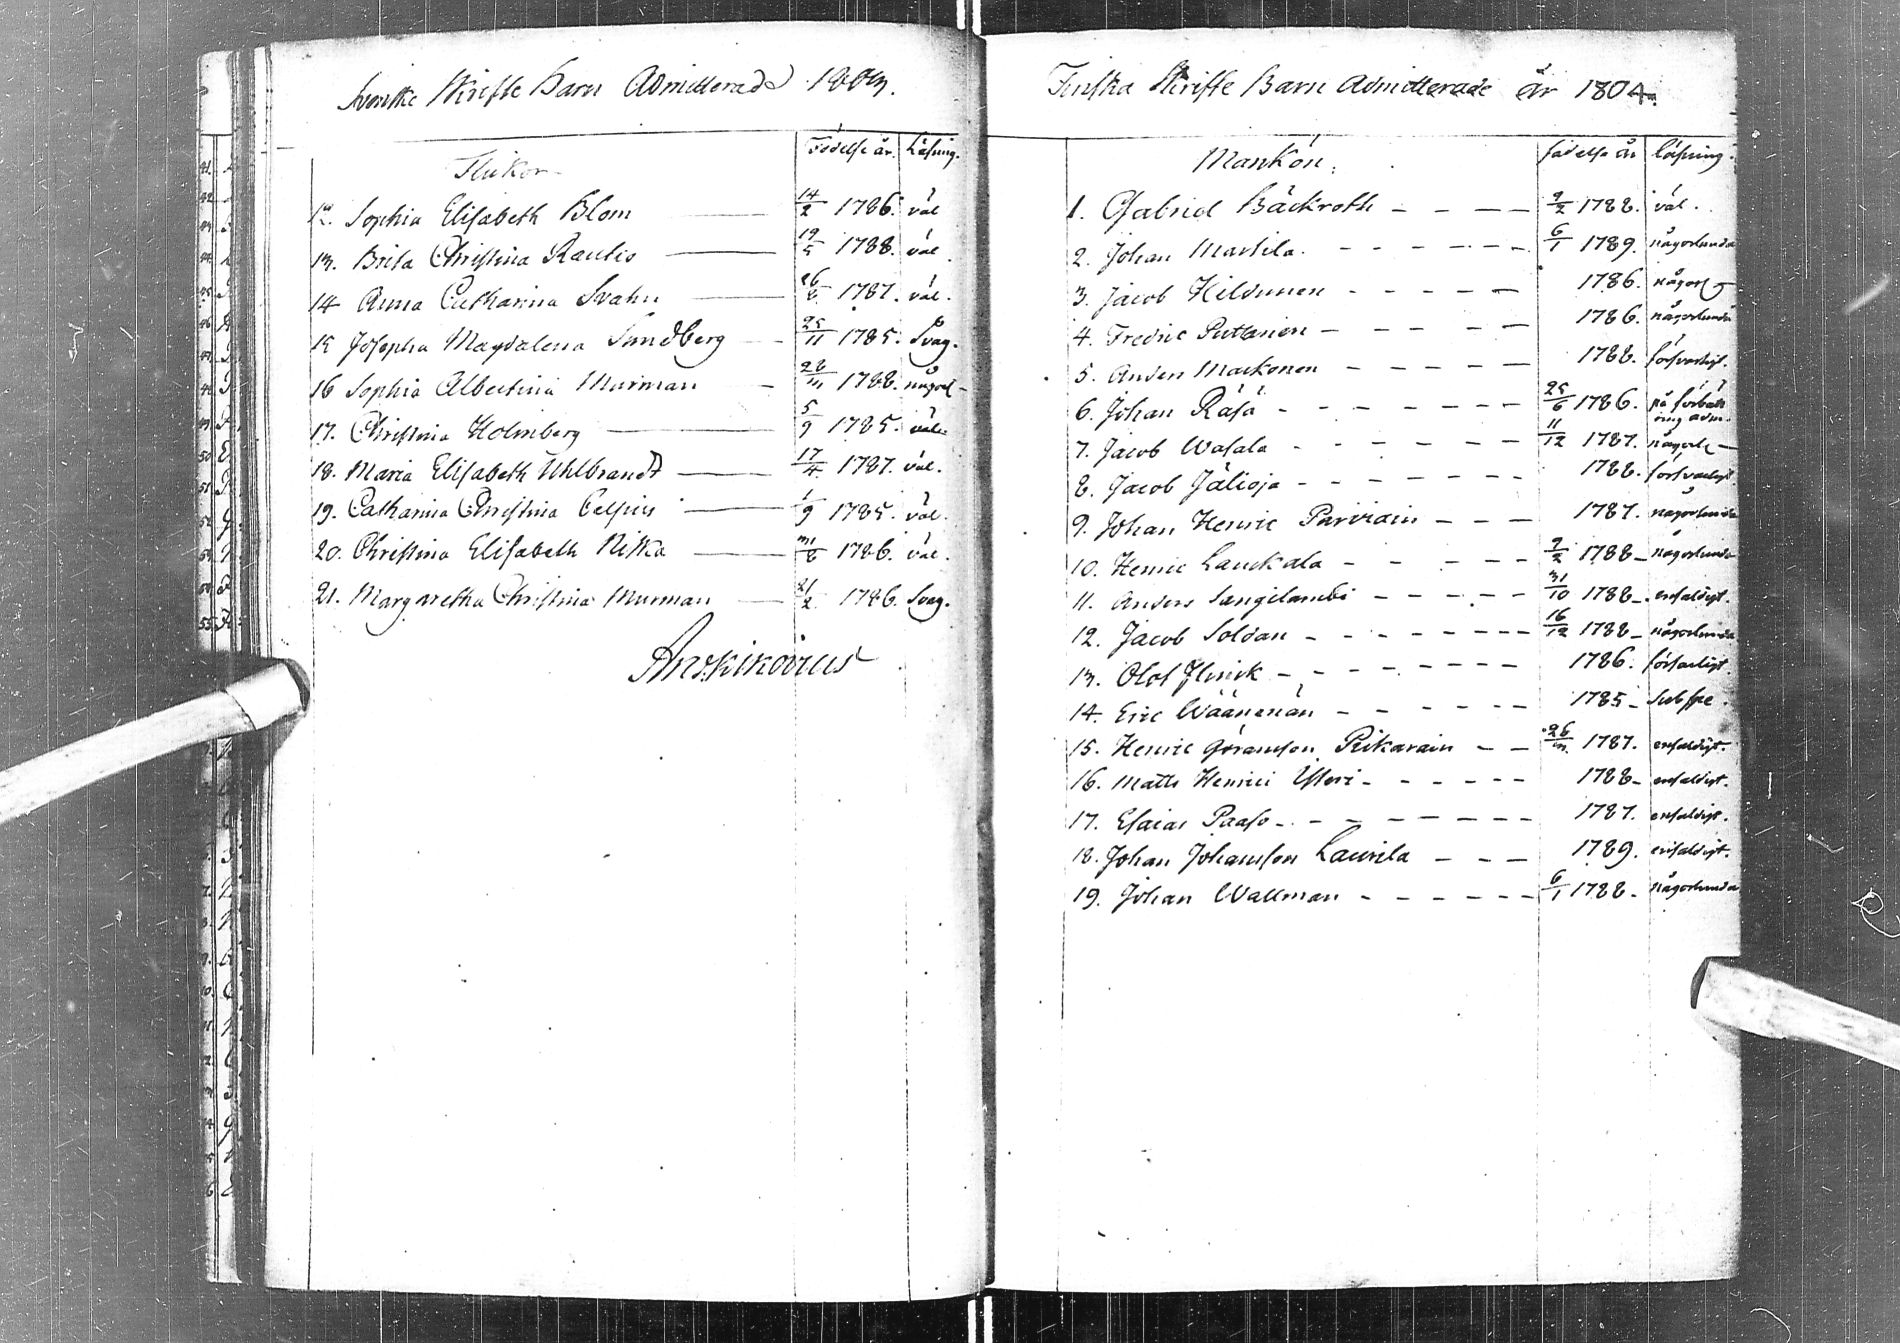 Svenske Skrifte Barn Admitterade 1803.
Flickor Födelse år. Läsning.
12. Sophia Elisabeth Blom 14/2 1786. väl
13. Brita Christina Rautio 19/5 1788. väl.
14 Anna Catharina Svahn 26/8 1787. väl.
15 Josepha Magdalena Sundberg 25/11 1785. Svag.
16 Sophia Albertina Murman 28/3 1788. någorl
17. Christina Holmberg 5/9 1785. väl.
18. Maria Elisabeth Uhlbrandt 17/4 1787. väl.
19. Catharina Christina 1/9 1785. väl.
20. Christina Elisabeth 31/8 1786. väl.
21. Margaretha Christina Murman 21/2 1786. Svag.
Finska Skrifte Barn Admitterade år 1804.
Mankön. födelse år läsning.
1. Gabriel Bäckroth 2/2 1788. väl.
2. Johan Martila. 6/1 1789. någorlunda
3. Jacob Hildunen 1786. någorl
4. Fredric Puttonen 1786. någorlunda
5. Anders Markonen 1788. försvarligt.
6. Johan Räsä 25/6 1786. på förbätt
ring adm.
7. Jacob Wasala 11/12 1787. någorl
8. Jacob Jälioja 1788. försvarligt
9. Johan Henric Parviain 1787. någorlunda
10. Henric Lauckala 2/2 1788 någorlunda
11. Anders Sangilambi 31/10 1788. enfaldigt.
12. Jacob Soldan 16/12 1788 någorlunda
13. Olof 1786. försvarligt.
14. Eric Wäänänän 1785 sub spe.
15. Henric Göransson Pikarain 26/3 1787. enfaldigt.
16. Matts Henrici 1788 enfaldigt.
17. Esaias Paaso 1787. enfaldigt.
18. Johan Johansson Laurila 1789. enfaldigt.
19. Johan Wallman 6/1 1788 någorlunda